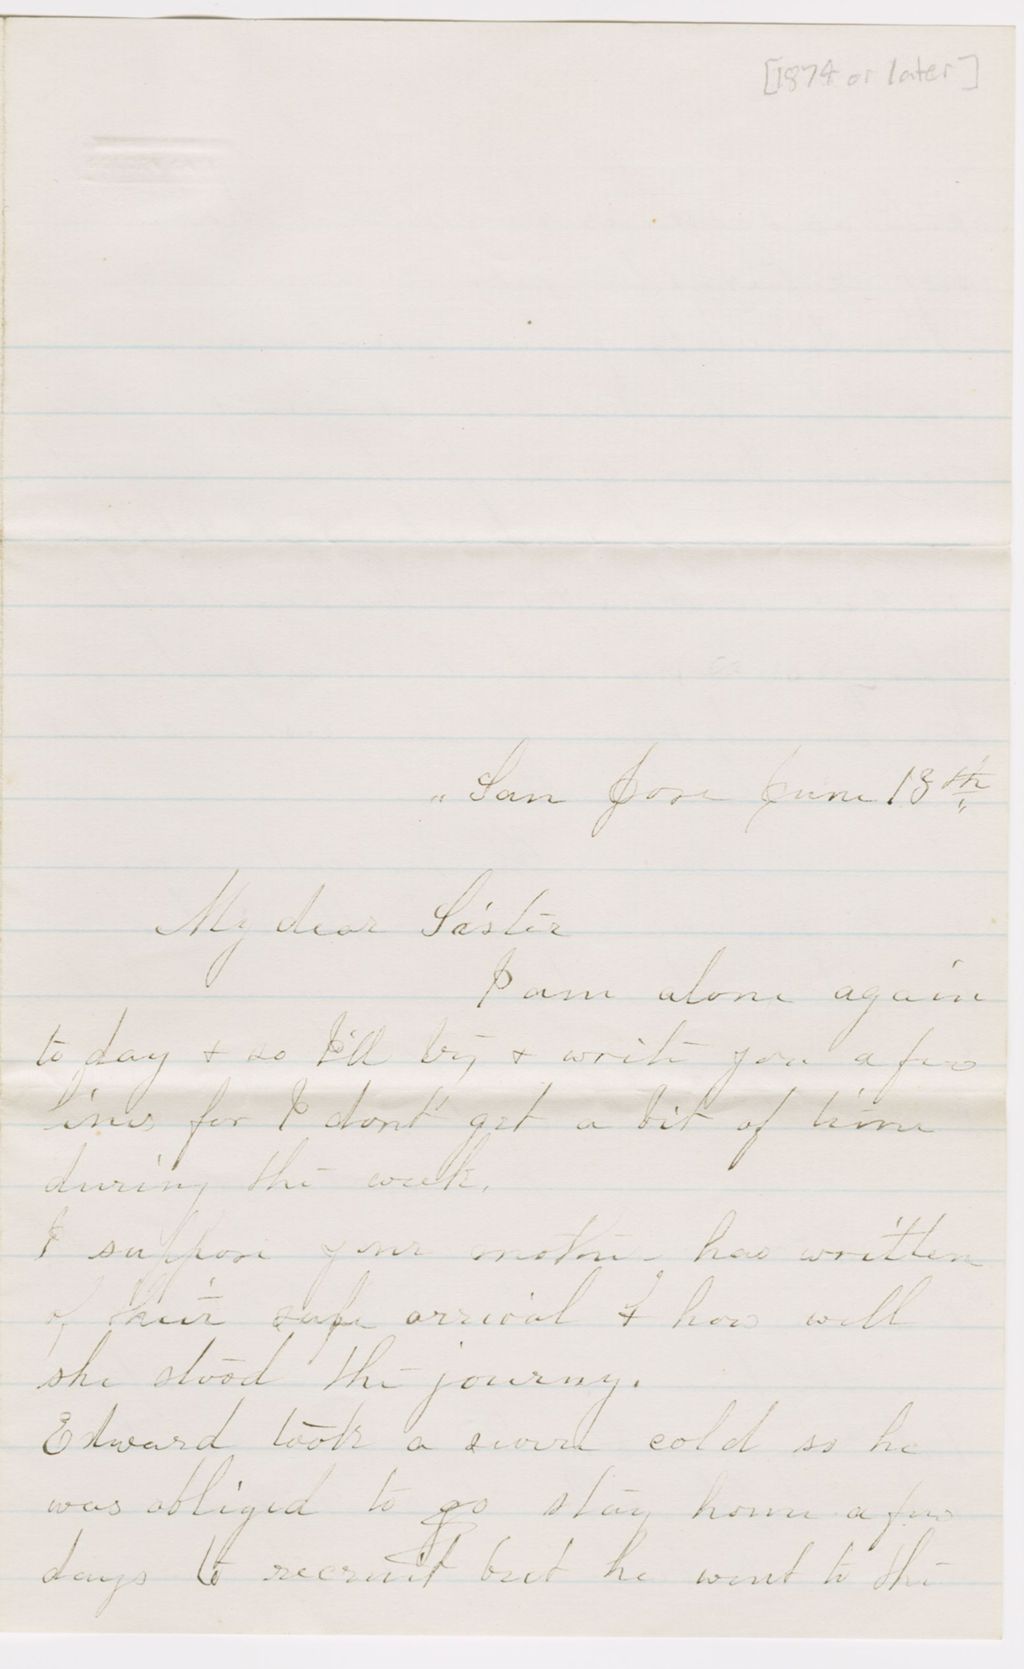 [1874 or later]
" San Jose June 13th "
My dear Sister
I am alone again
to day & so I'll try & write you a few
lines for I dont get a bit of time
during the week.
I suppose your mother has written
of their safe arrival & how well
she stood the journy.
Edward took a severe cold so he
was obliged to go stay home a few
days to recruit but he went to the